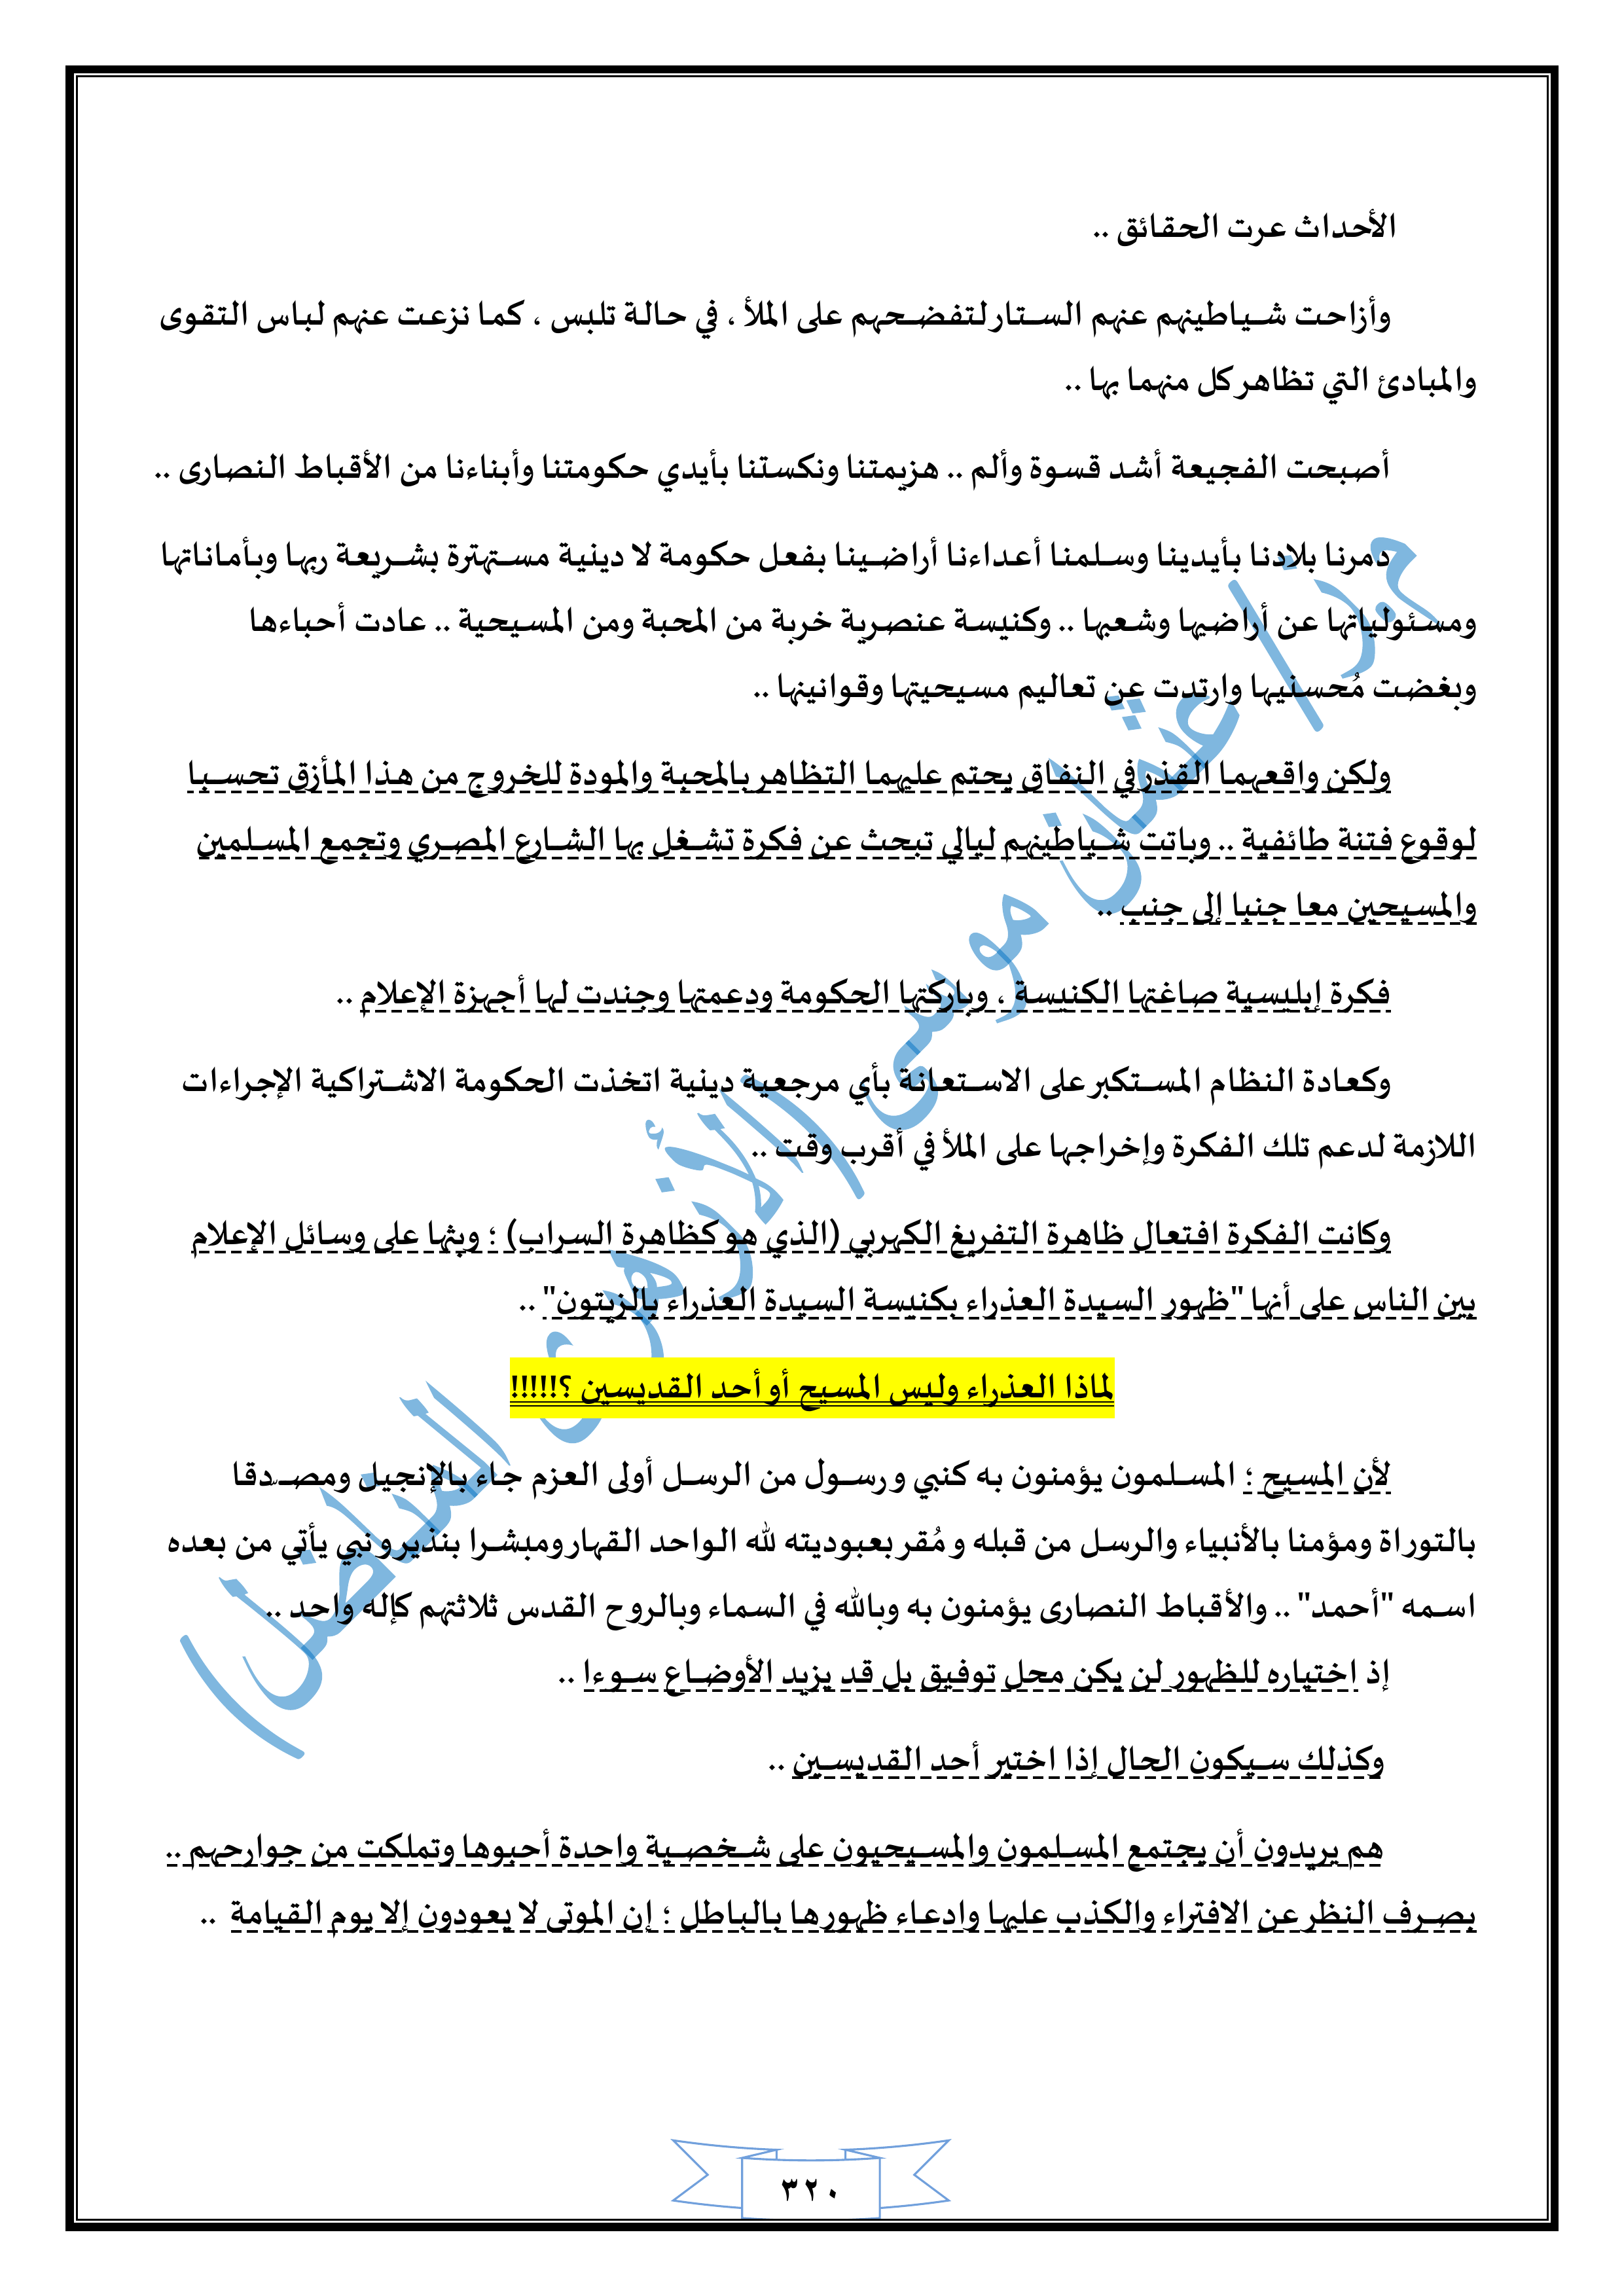 الأحداث عرت الحقائق ..
وأزاحت شياطينهم عنهم الستار لتفضحهم على الملأ ، في حالة تلبس ، كما نزعت عنهم لباس التقوى
والمبادئ التي تظاهر كل منهما بها ..
أصبحت الفجيعة أشد قسوة وألم .. هزيمتنا ونكستنا بأيدي حكومتنا وأبناءنا من الأقباط النصارى ..
دمرنا بلادنا بأيدينا وسلمنا أعداءنا أراضينا بفعل حكومة لا دينية مستهترة بشريعة ربها وبأماناتها
ومسئولياتها عن أراضيها وشعبها .. وكنيسة عنصرية خربة من المحبة ومن المسيحية .. عادت أحباءها
وبغضت مُحسنيها وارتدت عن تعاليم مسيحيتها وقوانينها ..
ولكن واقعهما القذر في النفاق يحتم عليهما التظاهر بالمحبة والمودة للخروج من هذا المأزق تحسبا
لوقوع فتنة طائفية .. وباتت شياطينهم ليالي تبحث عن فكرة تشغل بها الشارع المصري وتجمع المسلمين
والمسيحين معا جنبا إلى جنب ..
فكرة إبليسية صاغتها الكنيسة ، وباركتها الحكومة ودعمتها وجندت لها أجهزة الإعلام ..
وكعادة النظام المستكبر على الاستعانة بأي مرجعية دينية اتخذت الحكومة الاشتراكية الإجراءات
اللازمة لدعم تلك الفكرة وإخراجها على الملأ في أقرب وقت ..
وكانت الفكرة افتعال ظاهرة التفريغ الكهربي (الذي هو كظاهرة السراب) ؛ وبثها على وسائل الإعلام
بين الناس على أنها "ظهور السيدة العذراء بكنيسة السيدة العذراء بالزيتون" ..
لماذا العذراء وليس المسيح أو أحد القديسين ؟!!!!!
لأن المسيح ؛ المسلمون يؤمنون به كنبي ورسول من الرسل أولى العزم جاء بالإنجيل ومصدقا
بالتوراة ومؤمنا بالأنبياء والرسل من قبله و مُقر بعبوديته لله الواحد القهار ومبشرا بنذير ونبي يأتي من بعده
اسمه "أحمد" .. والأقباط النصارى يؤمنون به وبالله في السماء وبالروح القدس ثلاثتهم كإله واحد ..
إذ اختياره للظهور لن يكن محل توفيق بل قد يزيد الأوضاع سوءا ..
وكذلك سيكون الحال إذا اختير أحد القديسين ..
هم يريدون أن يجتمع المسلمون والمسيحيون على شخصية واحدة أحبوها وتملكت من جوارحهم ..
بصرف النظر عن الافتراء والكذب عليها وادعاء ظهورها بالباطل ؛ إن الموتى لا يعودون إلا يوم القيامة ..
م.ر/ عثمان موسى (الأزهري المناضل)
٣٢٠